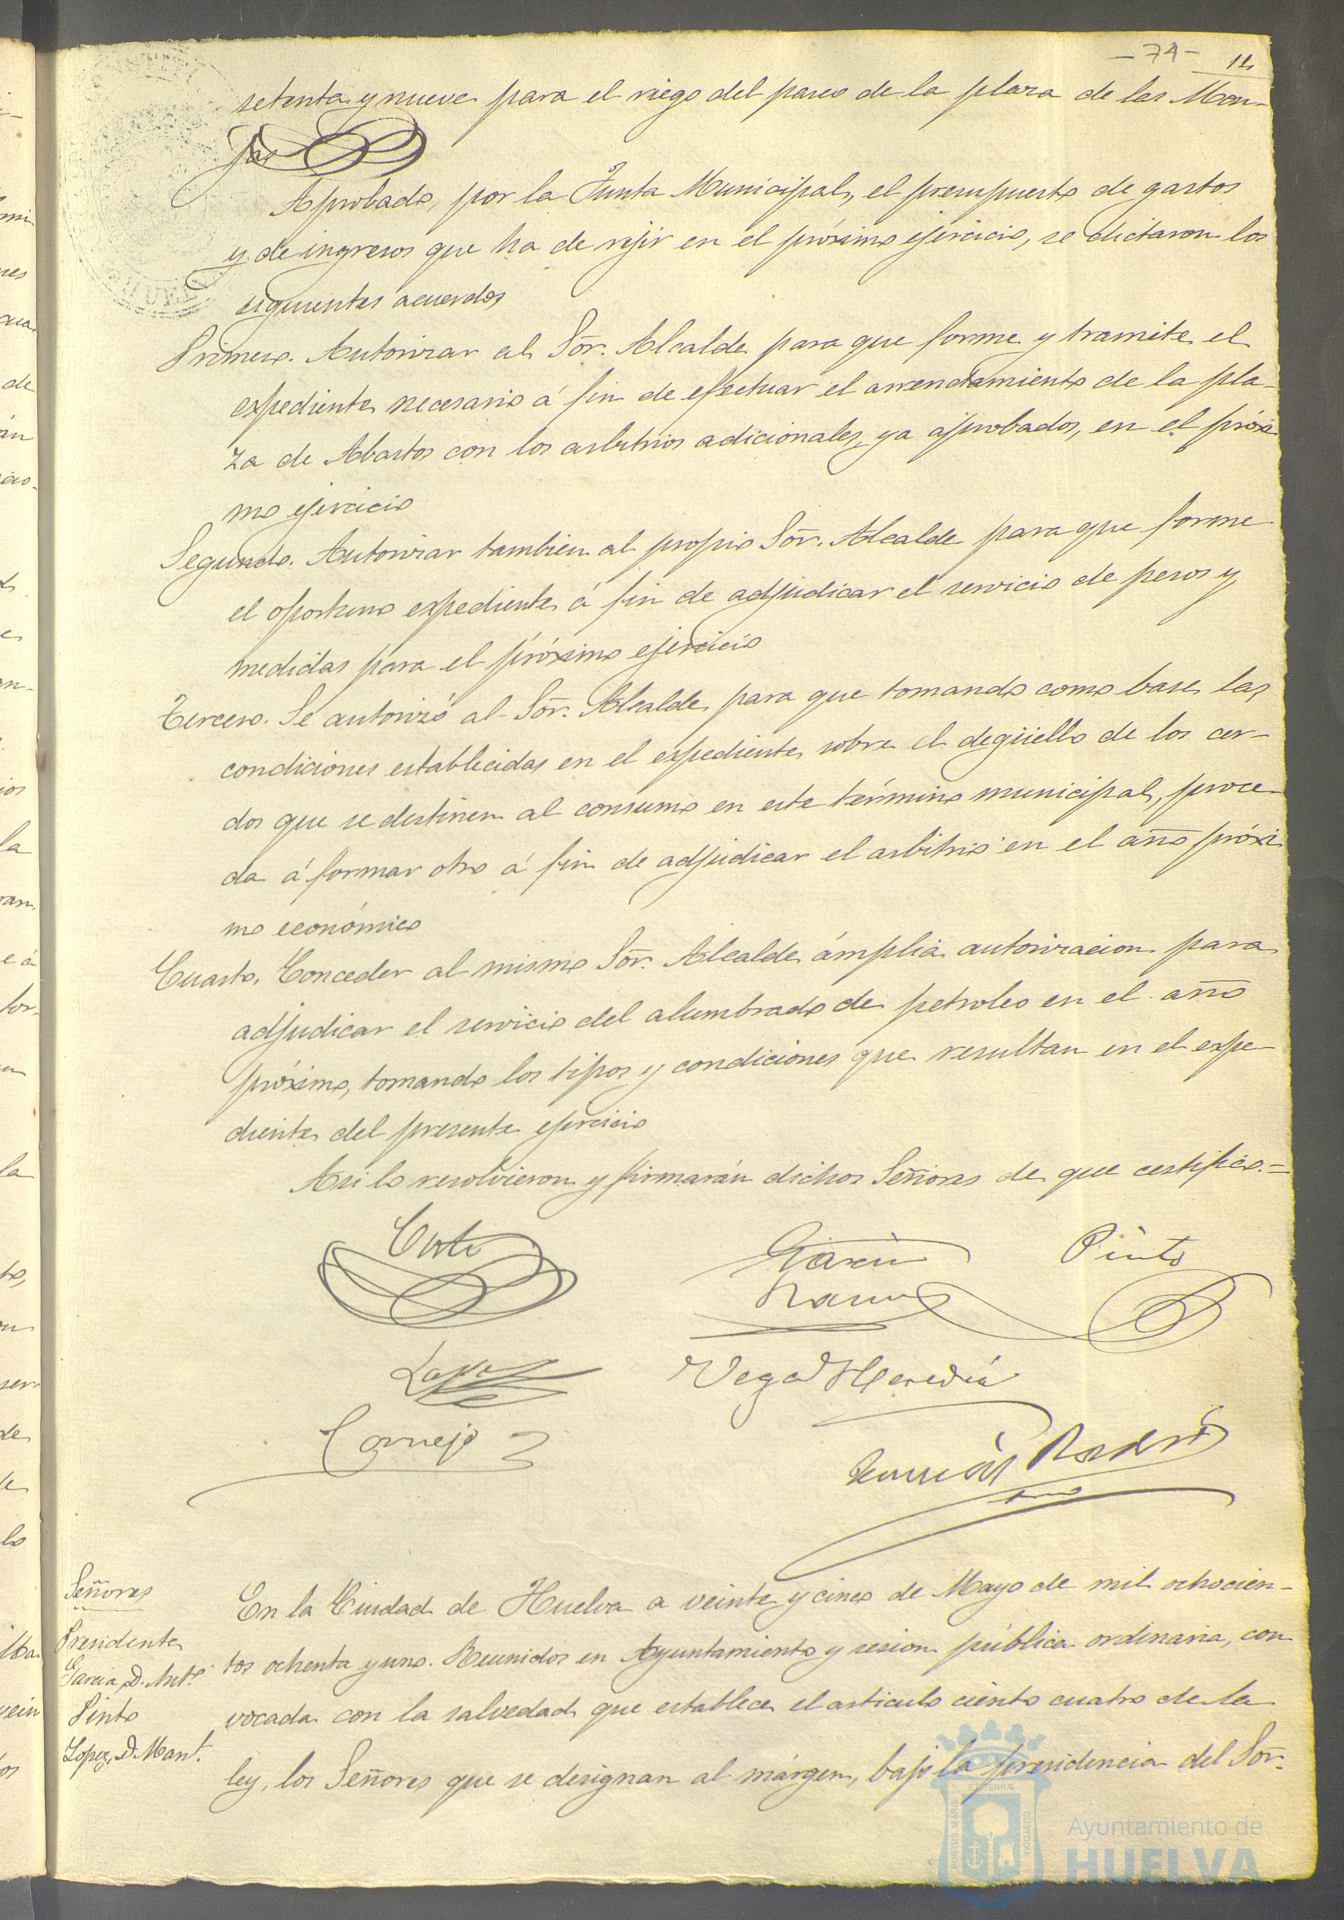 -74- 11
setenta y nueve para el riego del paseo de la plaza de las Mon-
jas
Aprobado, por la Junta Municipal, el presupuesto de gastos
y de ingresos que ha de rejir en el próximo ejercicio, se dictaron los
siguientes acuerdos
Primero. Autorizar al Sõr. Alcalde para que forme y tramite el
expediente necesario á fin de efectuar el arrendamiento de la pla-
za de Abastos con los arbitrios adicionales, ya aprobados, en el próxi
mo ejercicio
Segundo. Autorizar tambien al propio Sõr. Alcalde para que forme
el oportuno expediente á fin de adjudicar el servicio de pesos y
medidas para el próximo ejercicio
Tercero. Se autorizó al Sõr. Alcalde para que tomando como base las
condiciones establecidas en el expediente sobre el degüello de los cer-
dos que se destinen al consumo en este término municipal, proce-
da á formar otro á fin de adjudicar el arbitrio en el año próxi
mo económico
Cuarto. Conceder al mismo Sõr. Alcalde ámplia autorizacion para
adjudicar el servicio del alumbrado de petroleo en el año
próximo, tomando los tipos y condiciones que resultan en el expe-
diente del presente ejercicio
Asi lo resolvieron y firmarán dichos Señores de que certifico.=
García Pinto
Lopez Vega Heredia
Cornejo
Señores
Presidente
Garcia, D. Antº
Pinto
Lopez, D. Manl.
En la Ciudad de Huelva a veinte y cinco de Mayo de mil ochocien-
tos ochenta y uno. Reunidos en Ayuntamiento y sesion pública ordinaria, con
vocada con la salvedad que establece el articulo ciento cuatro de la
ley, los Señores que se designan al márgen, bajo la presidencia del Sõr.
Ayuntamiento de
HUELVA